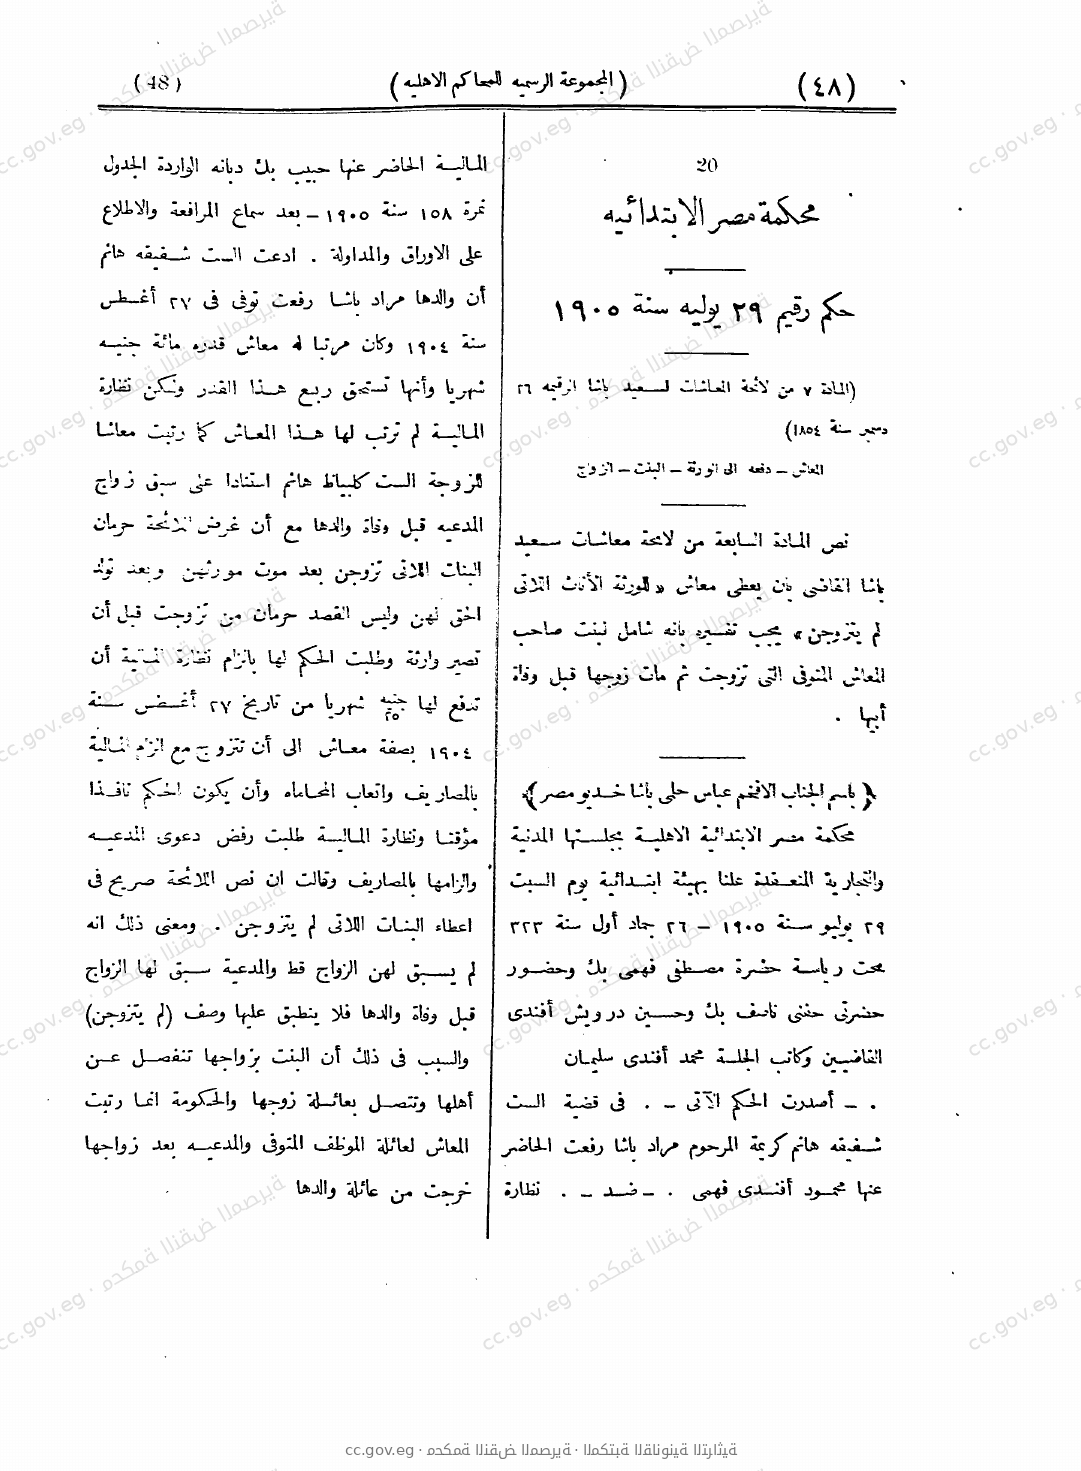 (٤٨)
(المجموعة الرسميه للمحاكم الاهليه)
(48)
20
محكمة مصر الابتدائيه
حكم رقيم ٢٩ يوليه سنة ١٩٠٥
(المادة ٧ من لائحة المعاشات لسعيد باشا الرقيمه ٢٦
دسمبر سنة ١٨٥٤)
المعاش – دفعه الى الورثة – البنت – الزواج
نص المادة السابعة من لائحة معاشات سعيد
باشا القاضى بان يعطى معاش «للورثة الأناث اللاتى
لم يتزوجن» يجب تفسيره بانه شامل لبنت صاحب
المعاش المتوفى التى تزوجت ثم مات زوجها قبل وفاة
أبيها .
﴿باسم الجناب الافخم عباس حلمى باشا خديو مصر﴾
محكمة مصر الابتدائية الاهلية بجلستها المدنية
والتجارية المنعقدة علنا بهيئة ابتدائية يوم السبت
٢٩ يوليو سنة ١٩٠٥ – ٢٦ جماد أول سنة ٣٢٣
تحت رياسة حضرة مصطفى فهمى بك وحضور
حضرتى حفنى ناصف بك وحسين درويش أفندى
القاضيين وكاتب الجلسة محمد أفندى سليمان
. – أصدرت الحكم الآتى – . فى قضية الست
شفيقه هانم كريمة المرحوم مراد باشا رفعت الحاضر
عنها محمود أفندى فهمى . – ضد – . نظارة
المالية الحاضر عنها حبيب بك دبانه الواردة الجدول
نمرة ١٥٨ سنة ١٩٠٥ – بعد سماع المرافعة والاطلاع
على الاوراق والمداولة . ادعت الست شفيقه هانم
أن والدها مراد باشا رفعت توفى فى ٢٧ أغسطس
سنة ١٩٠٤ وكان مرتبا له معاش قدره مائة جنيه
شهريا وأنها تستحق ربع هذا القدر ولكن نظارة
المالية لم ترتب لها هذا المعاش كما رتبت معاشا
للزوجة الست كلبياظ هانم استنادا على سبق زواج
المدعيه قبل وفاة والدها مع أن غرض اللائحة حرمان
البنات اللاتى تزوجن بعد موت مورثهن وبعد تولد
الحق لهن وليس القصد حرمان من تزوجت قبل أن
تصير وارثة وطلبت الحكم لها بالزام نظارة المالية أن
تدفع لها ٢٥ جنيه شهريا من تاريخ ٢٧ أغسطس سنة
١٩٠٤ بصفة معاش الى أن تتزوج مع الزام المالية
بالمصاريف واتعاب المحاماه وأن يكون الحكم نافذا
مؤقتا ونظارة المالية طلبت رفض دعوى المدعيه
والزامها بالمصاريف وقالت ان نص اللائحة صريح فى
اعطاء البنات اللاتى لم يتزوجن . ومعنى ذلك انه
لم يسبق لهن الزواج قط والمدعية سبق لها الزواج
قبل وفاة والدها فلا ينطبق عليها وصف (لم يتزوجن)
والسبب فى ذلك أن البنت بزواجها تنفصل عن
أهلها وتتصل بعائلة زوجها والحكومة انما رتبت
المعاش لعائلة الموظف المتوفى والمدعيه بعد زواجها
خرجت من عائلة والدها
cc.gov.eg · محكمة النقض المصرية · المكتبة القانونية التراثية